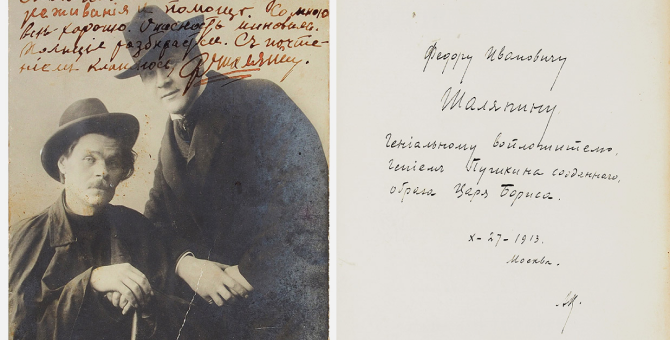 реживанія и помощь. Со мною
всѣ хорошо. Опасность миновала.
разбираться. Съ почте-
ніем кланяюсь,
Федору Ивановичу
Шаляпину
Геніальному воплотителю,
Геніем Пушкина созданного,
образа Царя Бориса.
X-27-1913.
Москва.